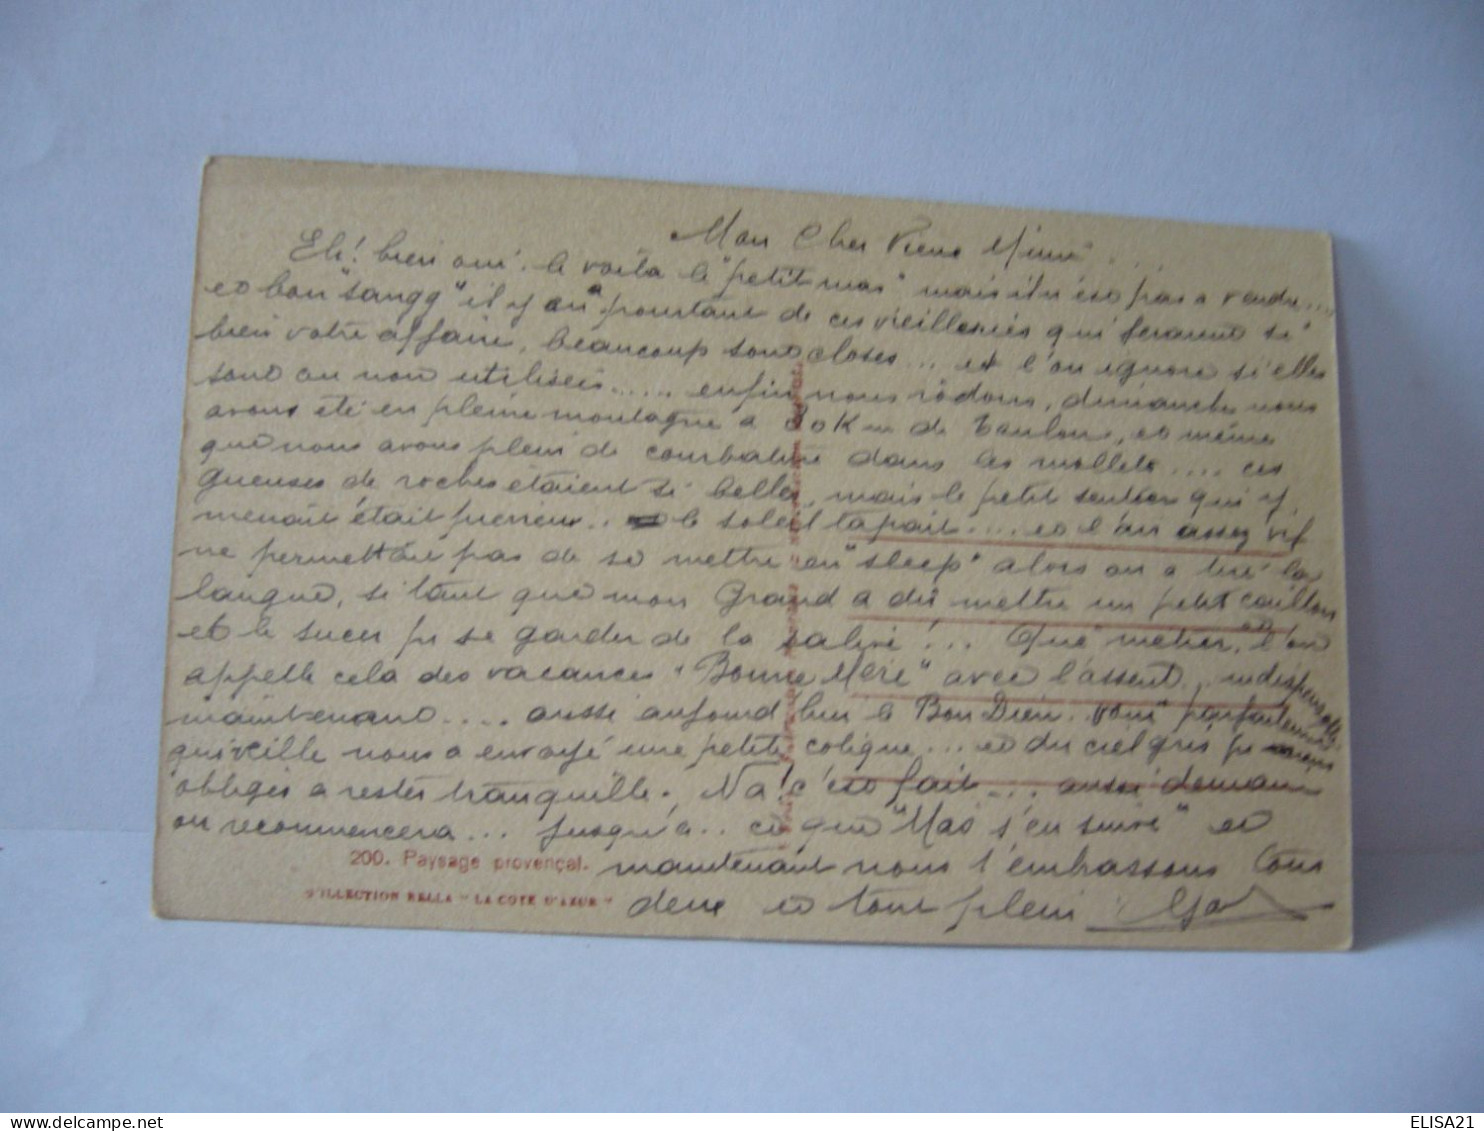 Mon Cher Vieux Mimi...
Eh! bien oui. le voila le "petit mas" mais il n'est pas a vendre....
et bon "sangg" il y en a pourtant de ces vieilleries qui feraient si
bien votre affaire, beaucoup sont closes... et l'on ignore si elles
sont ou non utilisées..... enfin nous rôdons, dimanche nous
avons été en pleine montagne a 20 Km de Toulon, et même
que nous avons plein de courbature dans les mollets.... ces
gueuses de roches étaient si belles, mais le petit sentier qui y
menait était pierreux.. le soleil tapait.... et l'air assez vif
ne permettait pas de se mettre en "sleep" alors on a tiré la
langue, si tant que mon Grand a dû mettre un petit caillou
et le sucer pr se garder de la salive!... Que métier, et l'on
appelle cela des vacances "Bonne Mère" avec l'assent, indispensable
maintenant.... aussi aujourd'hui le Bon Dieu.. parfaitement
qui veille nous a envoyé une petite colique... et du ciel gris pr
obligés a rester tranquille. Na! c'est fait.... aussi demain
on recommencera... jusqu'a.. ce que "Mas s'en suive" et
200. Paysage provençal. maintenant nous t'embrassons tous
COLLECTION RELLA "LA COTE D'AZUR" deux et tout plein
ELISA21